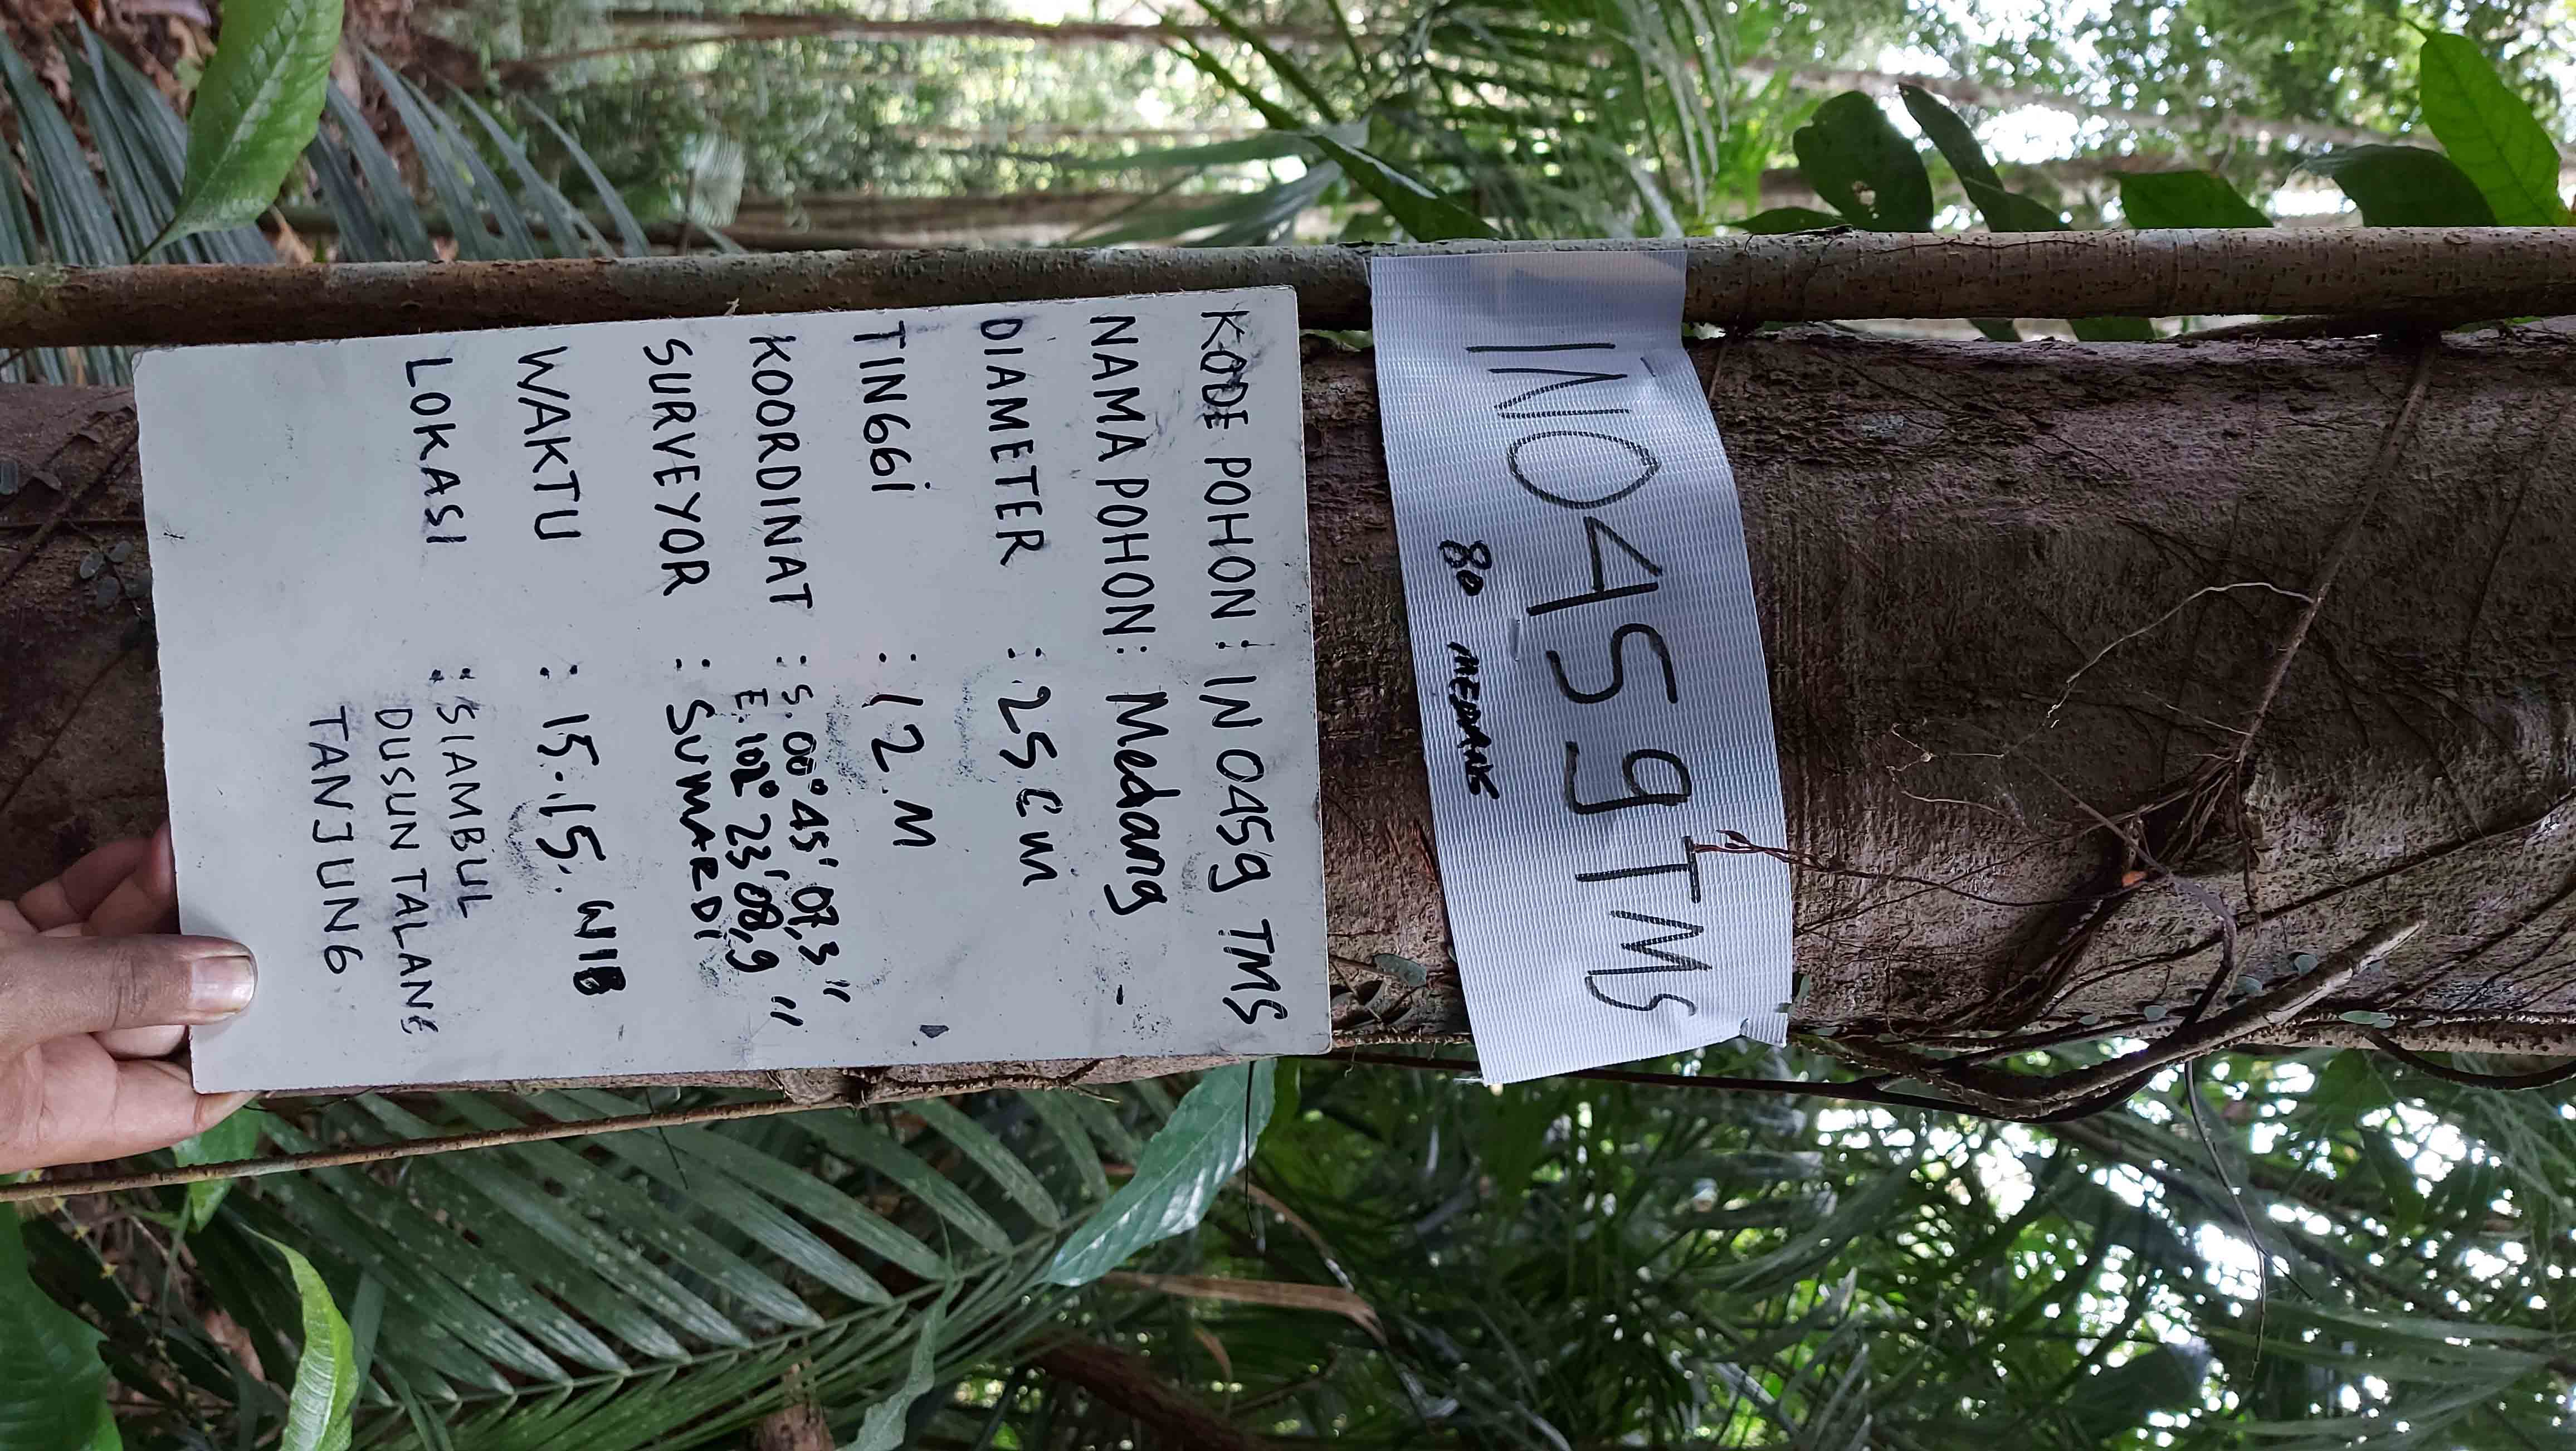 IN0459TMS
80 MEDANG
KODE POHON: IN 0459 TMS
NAMA POHON: Medang
DIAMETER : 25 cm
TINGGi : 12 M
KOORDINAT : S. 00° 45' 07,3"
E. 102° 23' 08,9"
SURVEYOR : SUMARDi
WAKTU : 15.15. WIB
LOKASI : SIAMBUL
DUSUN TALANG
TANJUNG